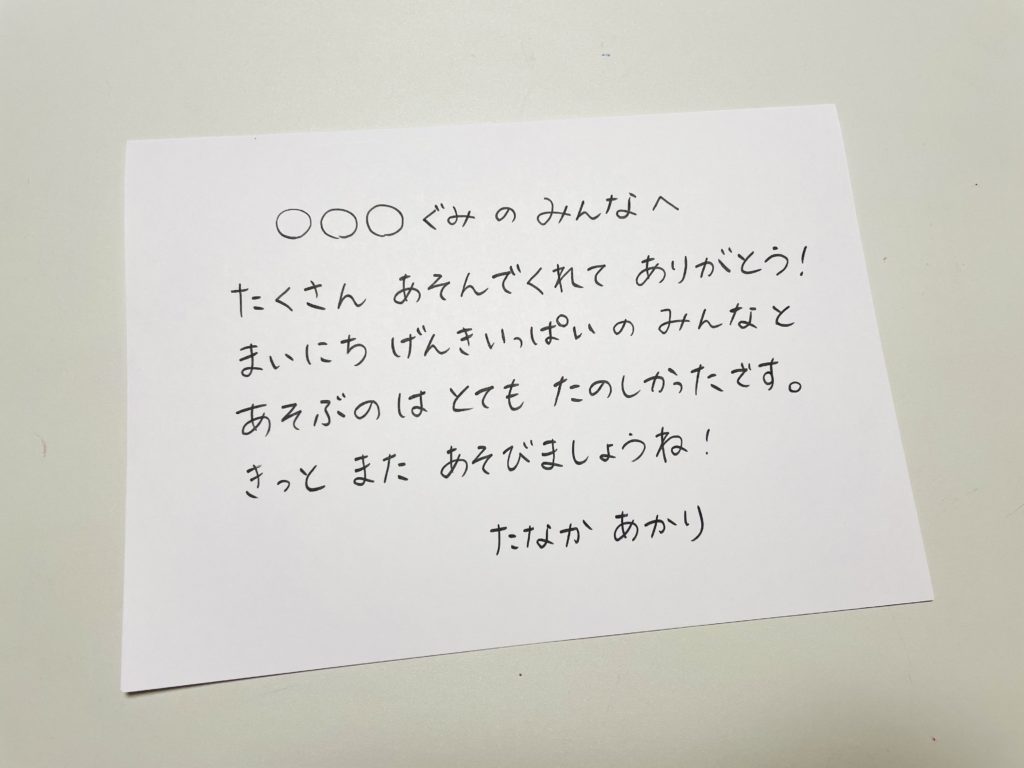 ○○○ぐみ の みんなへ
たくさん あそんでくれて ありがとう!
まいにち げんきいっぱいの みんなと
あそぶのは とても たのしかったです。
きっと また あそびましょうね!
たなか あかり